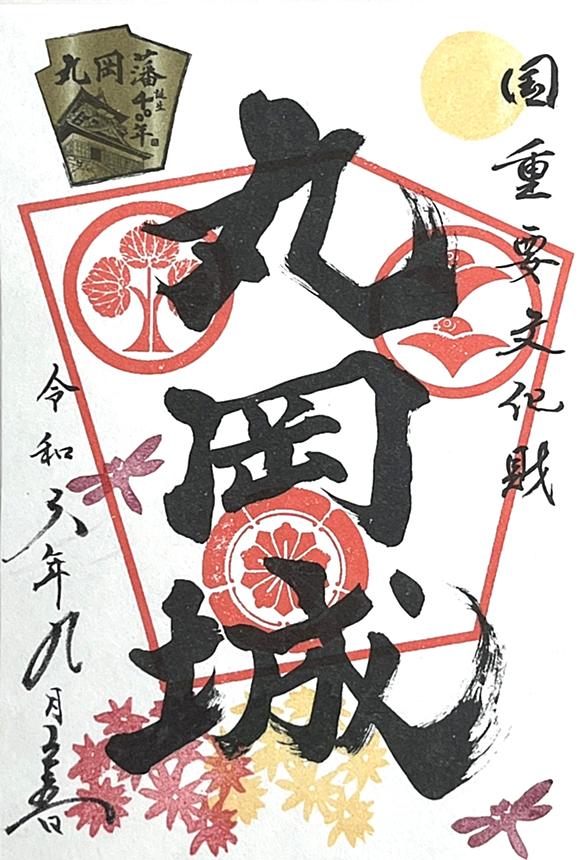 国重要文化財
丸岡城
令和六年九月
丸岡藩
誕生
400年